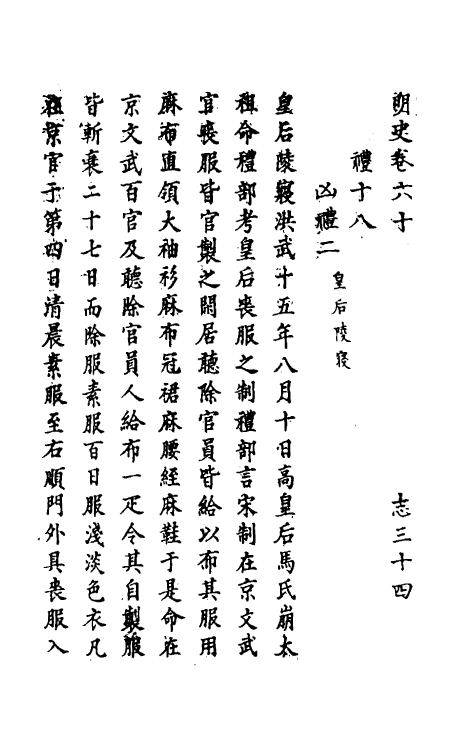 明史卷六十　志三十四
禮十八
凶禮二　皇后陵寢
皇后陵寢洪武十五年八月十日高皇后馬氏崩太
祖命禮部考皇后喪服之制禮部言宋制在京文武
官喪服皆官製之閒居聽除官員皆給以布其服用
麻布直領大袖衫麻布冠裙麻腰絰麻鞋于是命在
京文武百官及聽除官員人給布一疋令其自製服
皆斬衰二十七日而除服素服百日服淺淡色衣凡
在京官于第四日清晨素服至右順門外具喪服入